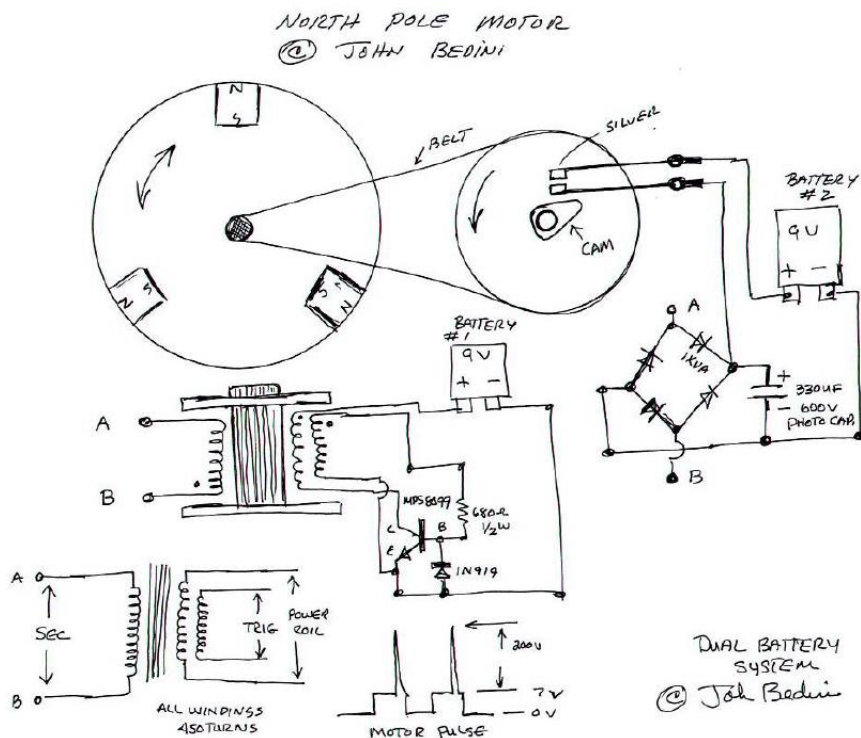 NORTH POLE MOTOR
© JOHN BEDINI
N
S
BELT
SILVER
CAM
BATTERY
#2
9V
+ -
N S
S
N
A
1KVA
+
330UF
600V
-
PHOTO CAP.
B
BATTERY
#1
9V
+ -
A
B
MPS8099
C
B
E
680Ω
1/2W
1N914
A
SEC
B
TRIG
POWER
COIL
ALL WINDINGS
450TURNS
200V
7V
0V
MOTOR PULSE
DUAL BATTERY
SYSTEM
© John Bedini